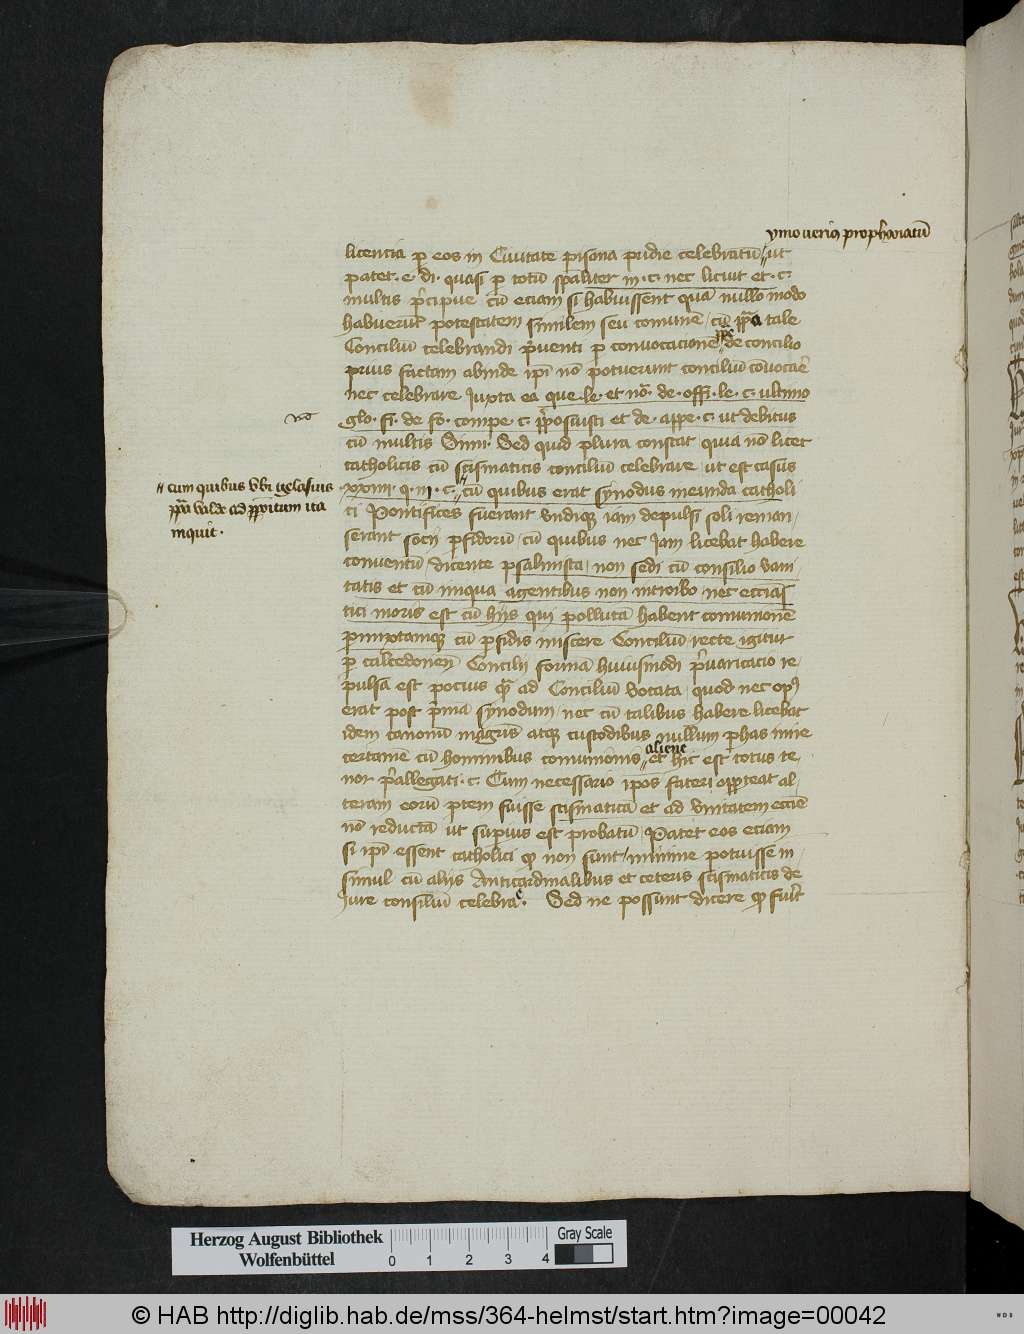 ymo verius prophanatū
licencia ꝑ eos in Ciuitate pisana pridie celebratū ut
patet e di quasi ꝑ totū spaliter in c nec licuit et c
multis p̄cipue cū eciam si habuissent quā nullo modo
habuerūt potestatem similem seu comunē cū ip̄a tale
Conciliū celebrandi p̄uenti ꝑ convocacionē de concilio
prius factam abinde ip̄i nō potuerunt conciliū cōuocare
nec celebrare Iuxta ea que le et nō de offi le c ultimo
glo fi de fo compe c et de appe c ut debitus
nō
cū multis Simi Sed quid plura constat quia nō licet
catholicis cū scismaticis conciliū celebrare ut est casus
xxiiii q iii c cū quibus erat synodus ineunda catholi
// cum quibus vbi gelasius
ad ita
inquit
ci Pontifices fuerant vndiqꝫ iam depulsi soli reman
serant socij ꝑfidorū cū quibus nec Iam licebat habere
conventū dicente psalmista non sedi cū consilio vani
tatis et cū iniqua agentibus non introibo nec eccias
tici moris est cū hijs qui polluta habent comunionē
ꝑmixtamqꝫ cū ꝑfidis miscere Conciliū recte igitur
ꝑ calcedonen Concilij formā huiusmodi p̄uaricacio re
pulsa est pocius qͣꝫ ad Conciliū vocata quod nec opꝰ
erat post p̄mā synodum nec cū talibus habere licebat
idem canonū magris atqꝫ custodibus nullum phas inire
certamē cū hominibus comunionis aliene et hic est totus te
nor p̄allegati c Cum necessario ipos fateri opꝑteat al
teram eorū ꝑtem fuisse scismaticā et ad vnitatem eccie
nō reductā ut supius est probatū Patet eos eciam
si ip̄i essent catholici qꝫ non sunt minime potuisse in
simul cū alijs Anticardinalibus et ceteris scismaticis de
Iure consiliū celebrare. Sed ne possunt dicere qꝫ fuit
Herzog August Bibliothek
Wolfenbüttel
0 1 2 3 4
Gray Scale
© HAB http://diglib.hab.de/mss/364-helmst/start.htm?image=00042